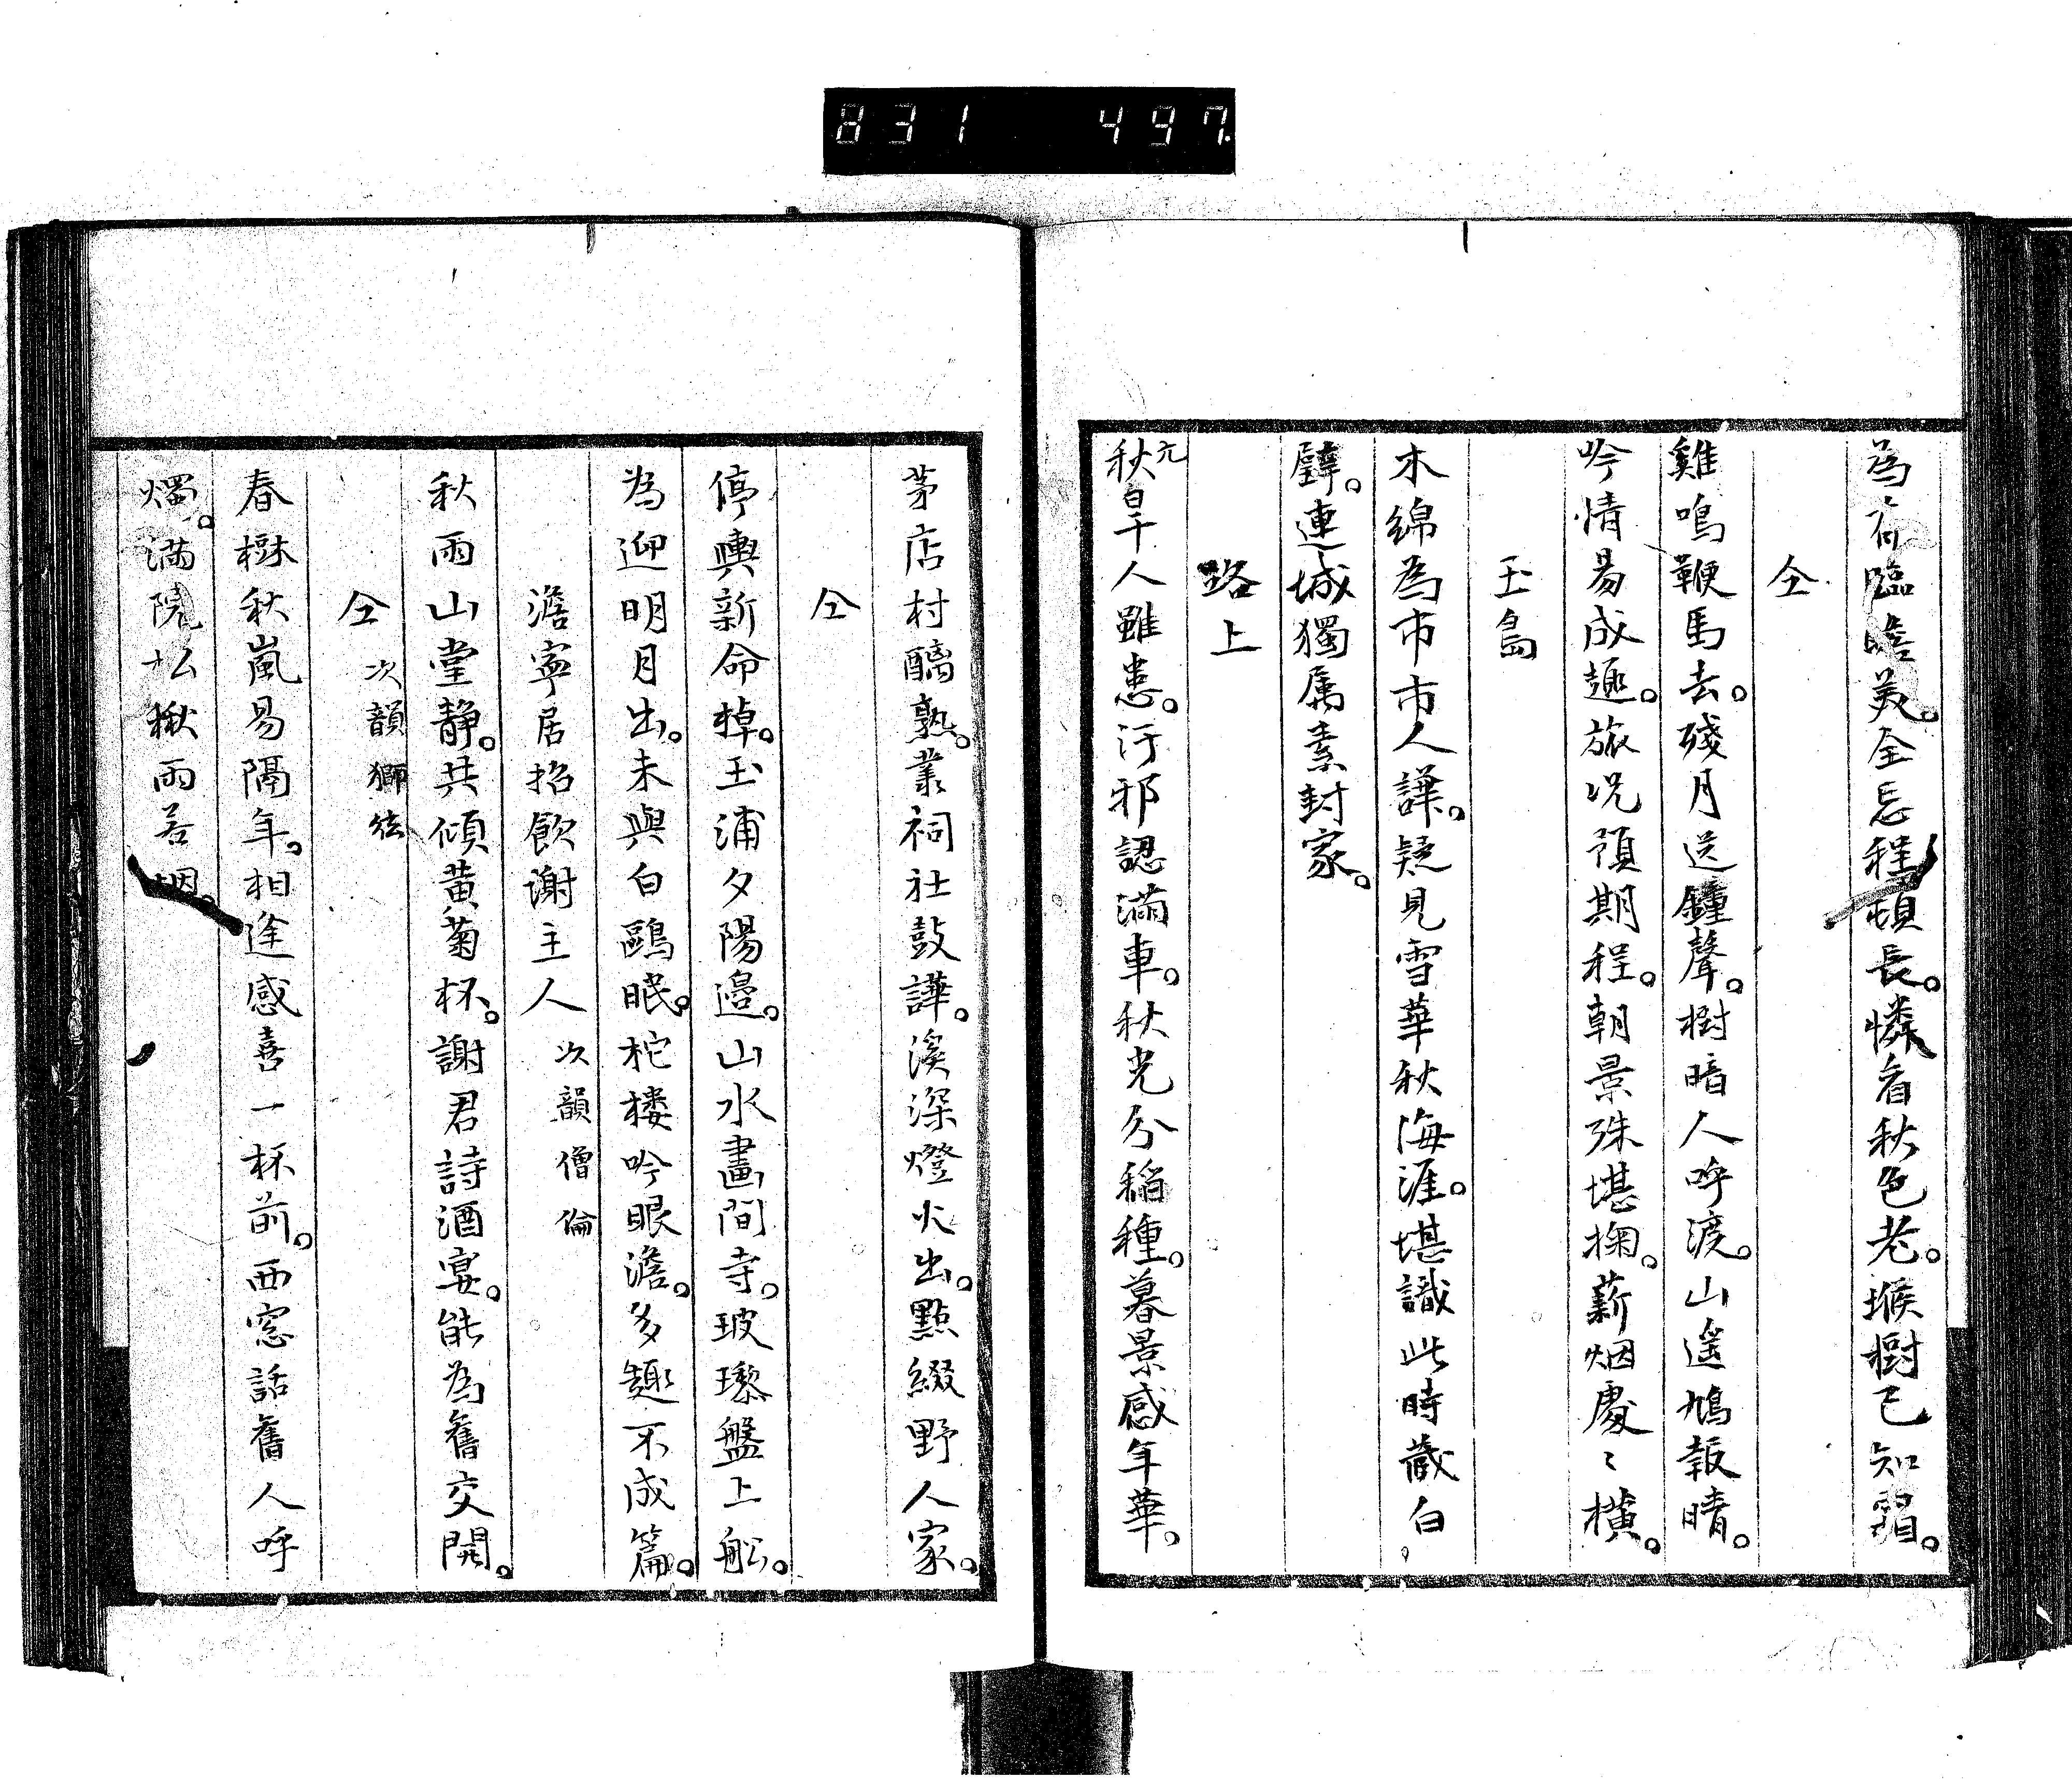 831 497
為有臨瞻美。全忘程頓長。憐看秋色老。堠樹已知霜。
仝
雞鳴鞭馬去。殘月送鐘聲。樹暗人呼渡。山遙鳩報晴。
吟情易成趣。旅况預期程。朝景殊堪掬。薪烟處〻橫。
玉島
木綿為市市人譁。疑見雪華秋海涯。堪識此時藏白
璧。連城獨属素封家。
路上
亢
秋旱千人雖患。汙邪認満車。秋光分稲種。暮景感年華。
茅店村醨熟。叢祠社鼓譁。溪深燈火出。點綴野人家。
仝
停輿新命棹。玉浦夕陽邉。山水畫間寺。玻瓈盤上舩。
為迎明月出。未與白鷗眠。柁楼吟眼澹。多趣不成篇。
澹寧居招飲謝主人 次韻僧倫
秋雨山堂静。共傾黄菊杯。謝君詩酒宴。能為舊交開。
仝 次韻獅絃
春樹秋嵐易隔年。相逢感喜一杯前。西窓話舊人呼
燭。満院松楸雨若烟。